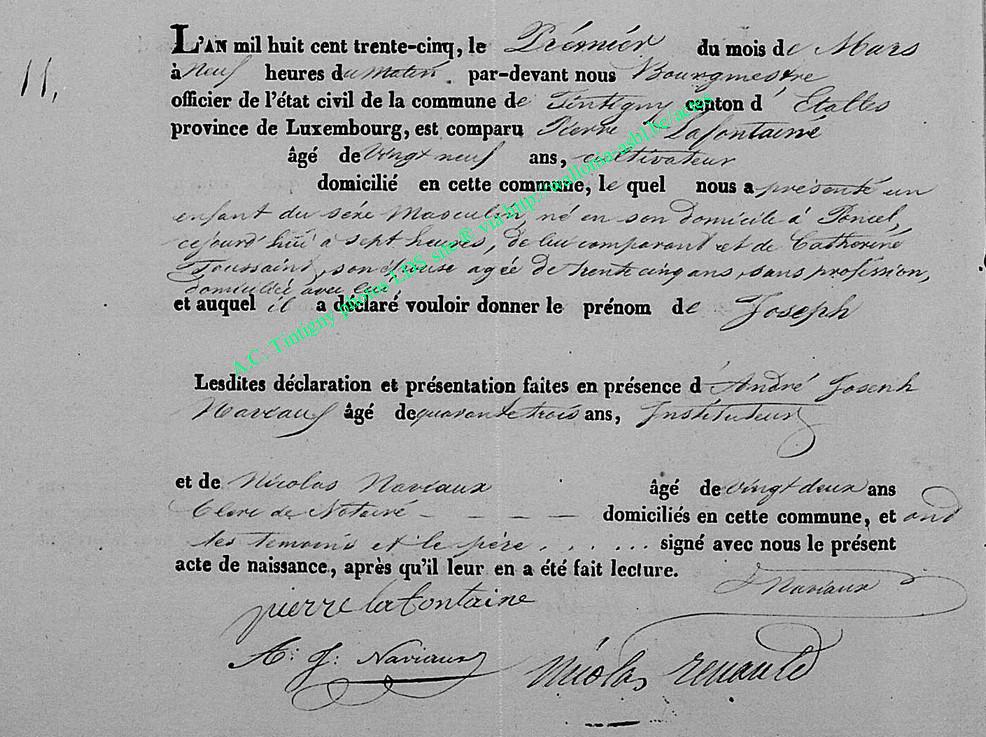 11,
L'AN mil huit cent trente-cinq, le Prémiér du mois de Mars
à Neuf heures du Matin . par-devant nous Bourgmestre
officier de l'état civil de la commune de Tintigny canton d' Étalles
province de Luxembourg, est comparu Pierre Lafontainé
âgé de vingt neuf ans, cultivateur
domicilié en cette commune, le quel nous a présenté un
enfant du séxe Masculin, né en son Domicile à Poncel,
cejourd'hui à sept heures, de lui comparant et de Catherine
Toussaint, son épouse agée de trente cinq ans, sans profession,
domiciliée avec lui
et auquel il a déclaré vouloir donner le prénom de Joseph
Lesdites déclaration et présentation faites en présence d'André Joseph
Naviaux âgé de quarante trois ans, Instituteur
et de Nicolas Naviaux âgé de vingt deux ans
Clerc de Notairé - - - - domiciliés en cette commune, et ont
les temoins et le père . . . . . . signé avec nous le présent
acte de naissance, après qu'il leur en a été fait lecture.
pierre lafontaine
Naviaux
A: J: Naviaux
Nicolas renauld
A.C. Tintigny photos LDS site® via http://wallonia-asbl.be/actes